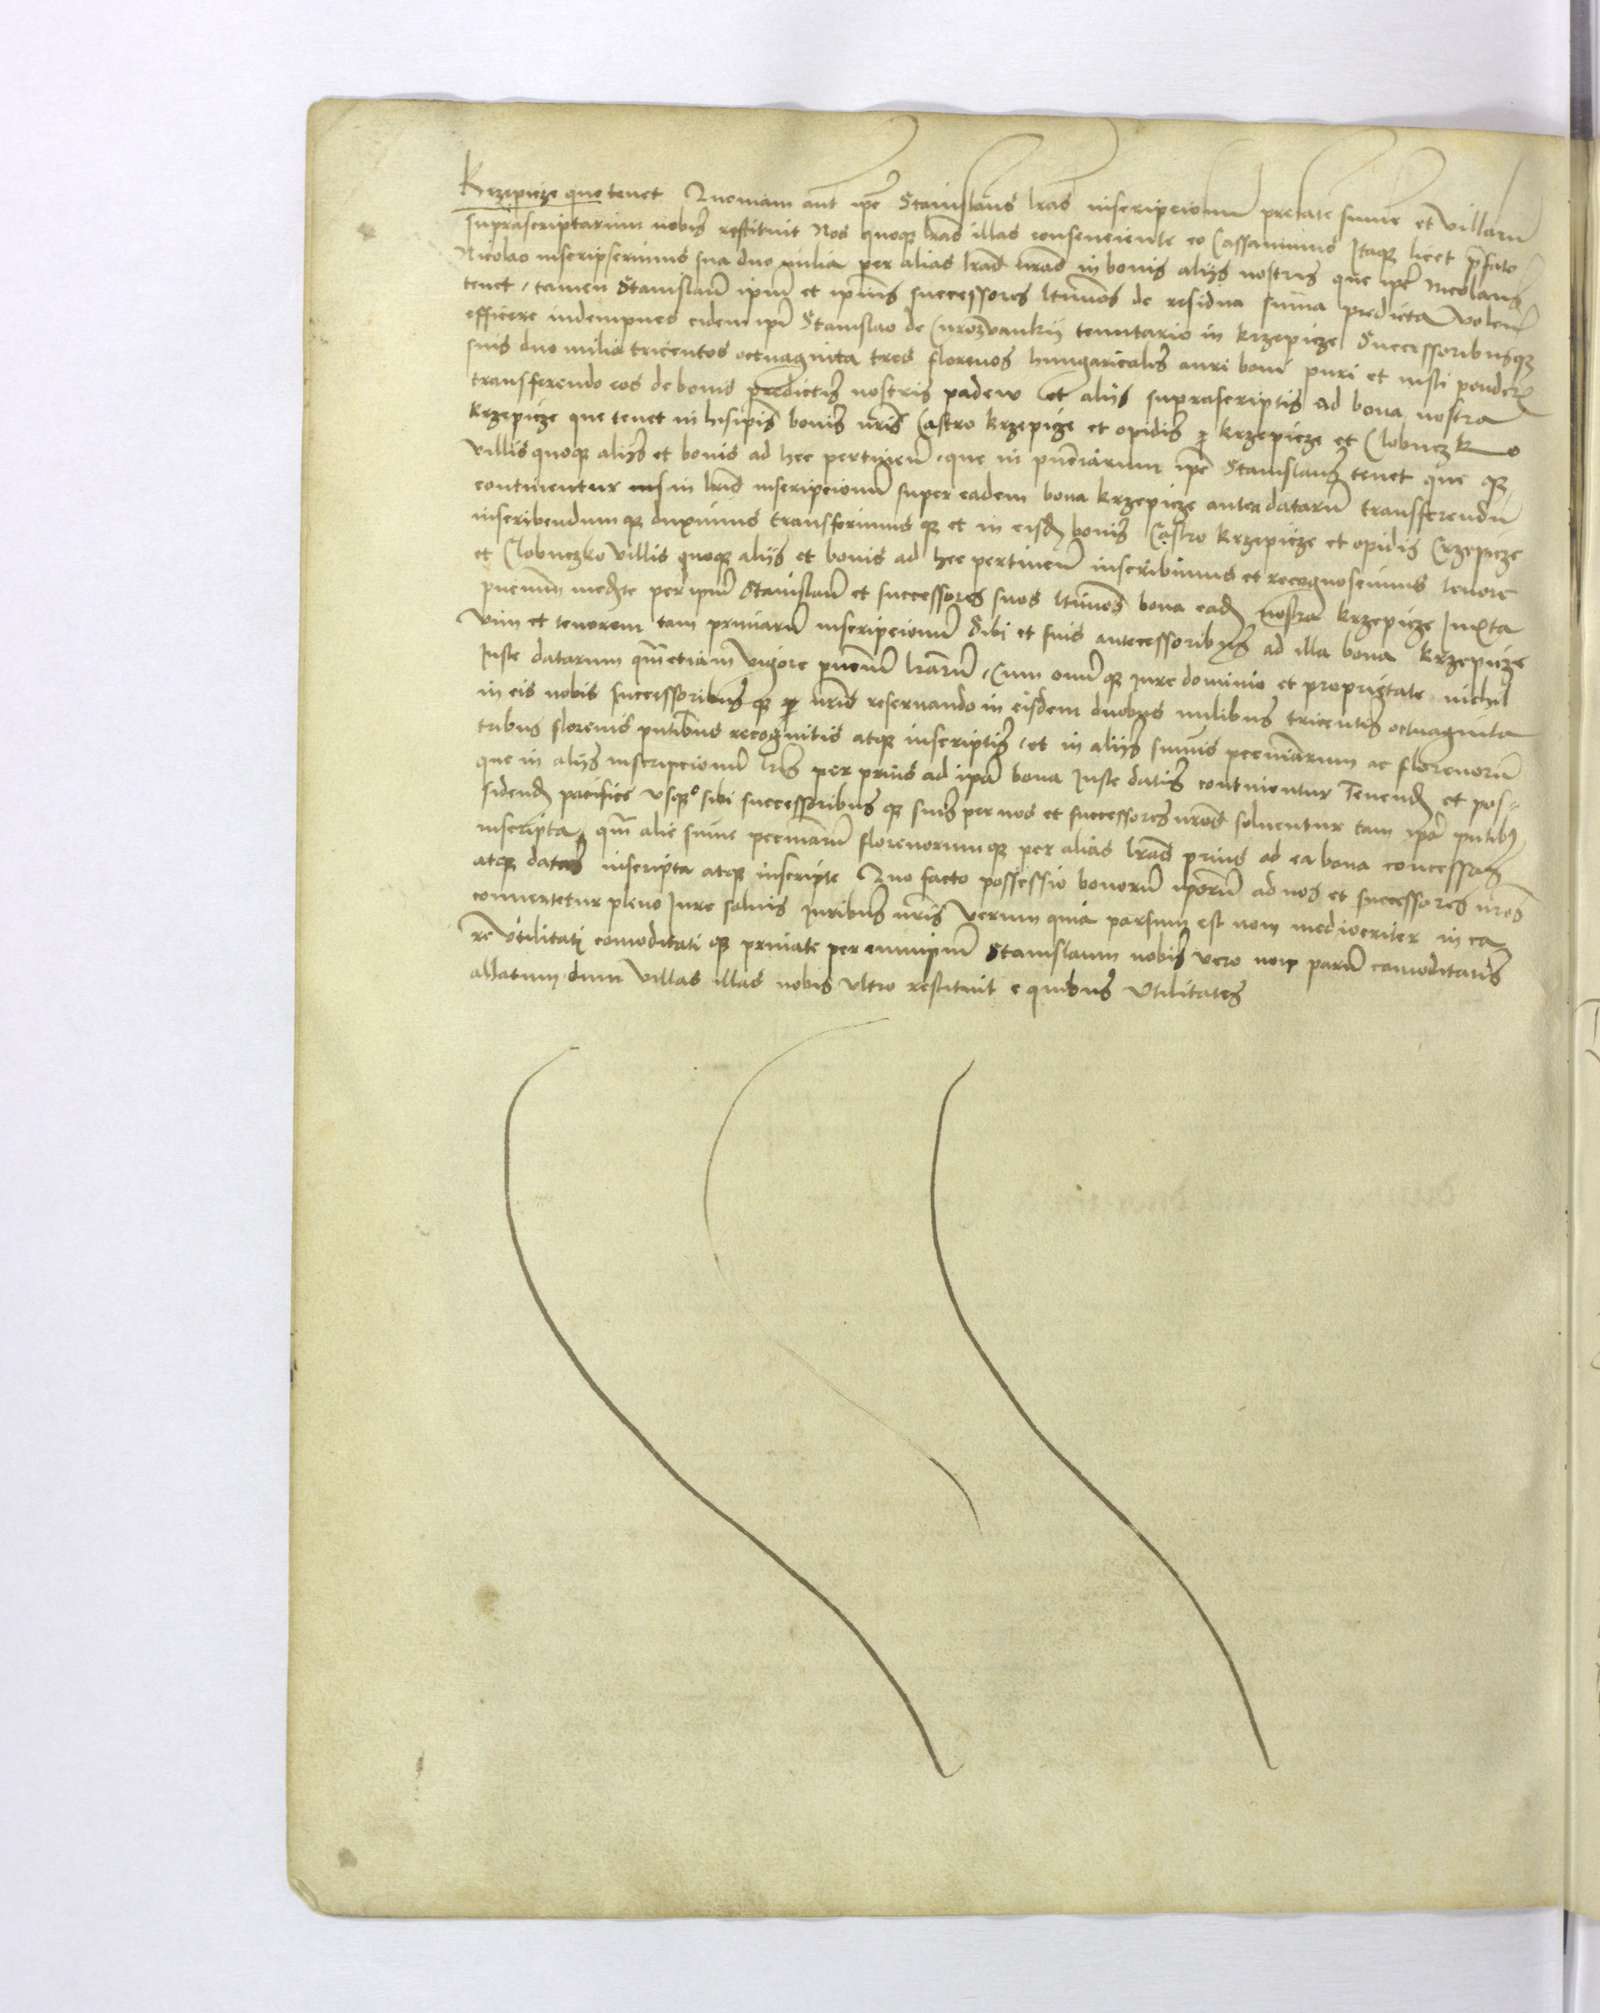 Krzepicze que tenet Quoniam aut ipse Stanislaus lras inscripcionu prefate sume et villaru
suprascriptarum nobis restituit Nos quoque lras illas consenciente eo Cassauimus Itaque licet prefato
Nicolao inscripserimus sua duo milia per alias lras nras in bonis aliis nostris que ipse Nicolaus
tenet, tamen Stanislau ipm et ipius successores ltimos de residua suma predicta volen
efficere indempnes eidem ipi Stanislao de Curozwanky tenutario in Krzepicze Successoribusque
suis duo milia tricentos octuaginta tres florenos hungaricalis auri boni puri et iusti ponderis
transferendo eos de bonis predictis nostris padew et aliis suprascriptis ad bona nostra
Krzepicze que tenet in hisipis bonis nris Castro Krzepicze et opidis Krzepicze et Clobuczko
villis quoque aliis et bonis ad hec pertinen, que in pnciarum ipe Stanislaus tenet que que
continentur in lris inscripcionu super eadem bona Krzepicze antea dataru transferendu
inscribendumque duximus transferimusque et in eisd bonis Castro Krzepicze et opidis Crzepicze
et Clobuczko villis quoque aliis et bonis ad hec pertinen inscribimus et recognoscimus tenore
pncium medte per ipm Stanislau et successores suos ltimos bona ead nostra Krzepicze Iuxta
vim et tenorem tam primaru inscripcionu sibi et suis antecessoribus ad illa bona Krzepicze
Iuste datarum qm etiam vigore pncium lraru, Cum omi que iure dominio et proprietate nichil
in eis nobis successoribusque nris reseruando in eisdem duobus milibus tricentis octuaginta
tribus florenis pntibus recognitis atque inscriptis, et in aliis sumis pecuniarum ac florenoru
que in aliis inscripcionu lris per prius ad ipa bona Iuste datis continentur Tenend et pos-
sidend pacifice vsque sibi successoribusque suis per nos et successores nros soluentur tam ipa pntibus
inscripta, qm alie sume pecuniaru florenorumque per alias lras prius ad ea bona concessas
atque datas inscripta atque inscripte Quo facto possessio bonoru iporu ad nos et successores nros
conuertetur pleno Iure saluis Iuribus nris Verum quia parsum est non mediocriter in ea
re vtilitati comoditatique priuate per eumipm Stanislaum nobis vero non paru comoditatis
allatum dum villas illas nobis vltro restituit e quibus vtilitates